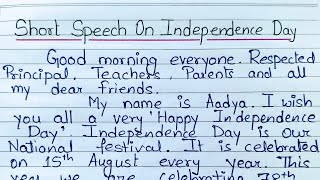 Short Speech On Independence Day
Good morning everyone. Respected
Principal, Teachers, Parents and all
my dear friends.
My name is Aadya. I wish
you all a very 'Happy Independence
Day'. Independence Day is our
National festival. It is celebrated
on 15th August every year. This
year we are celebrating 78th